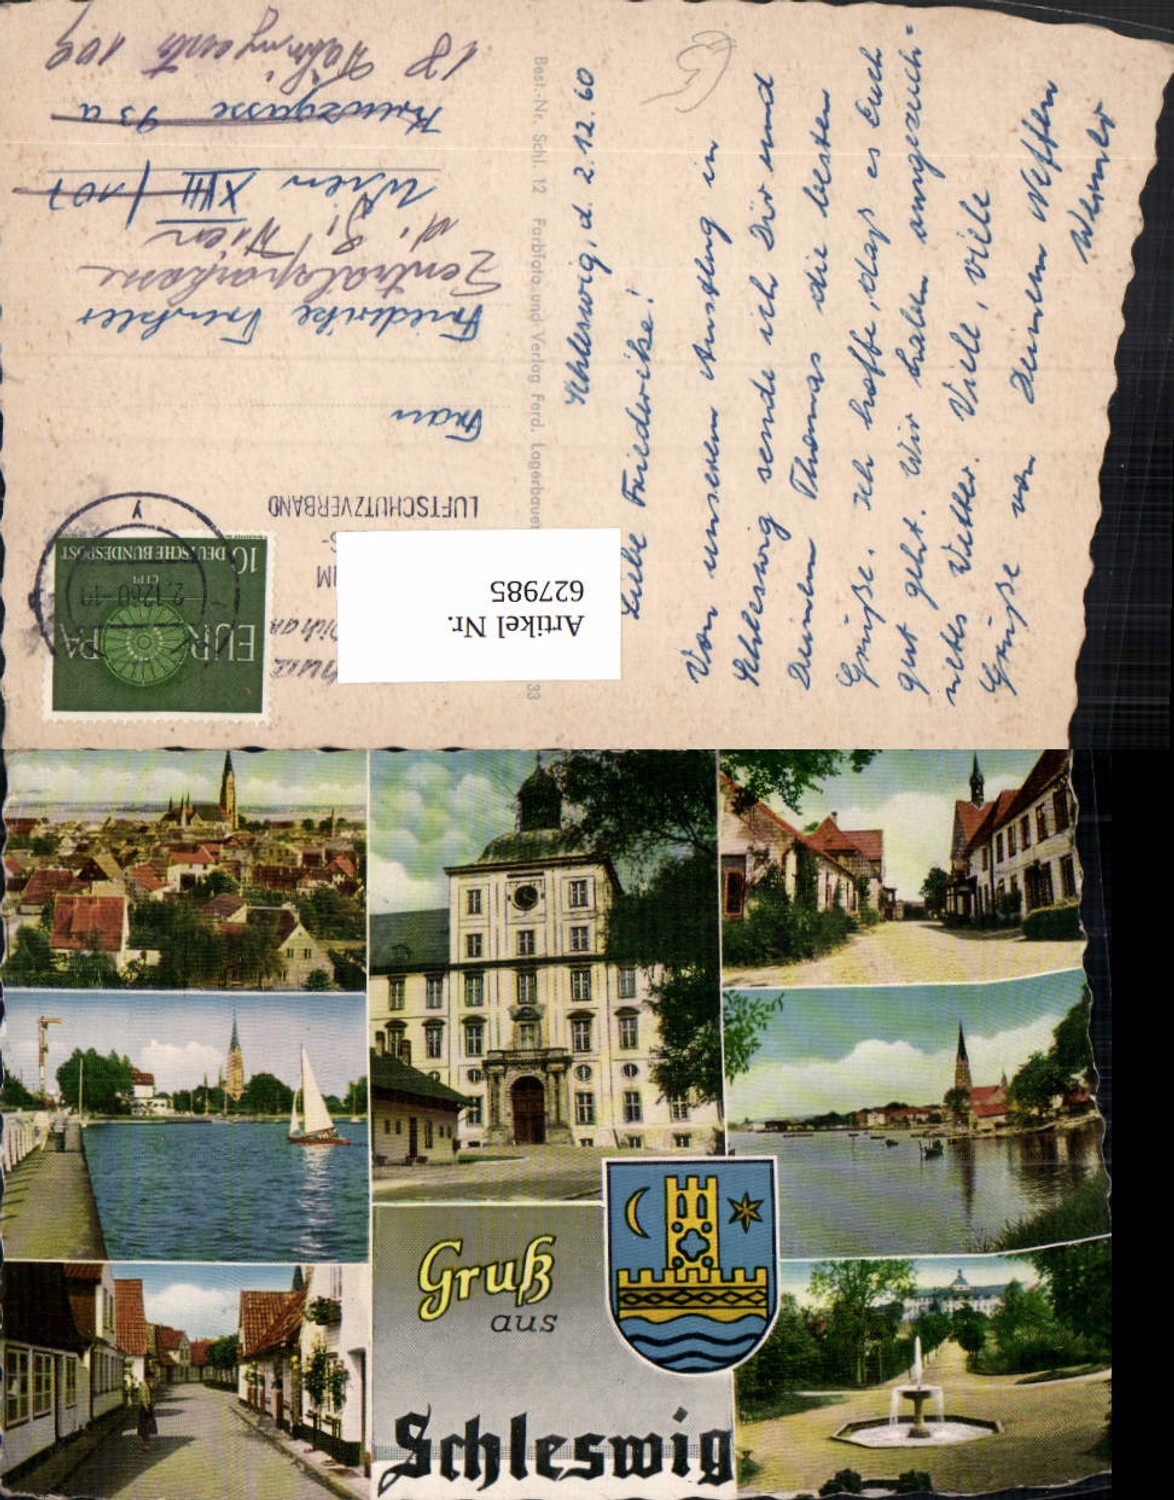 Schleswig, d. 2.12.60
Liebe Friederike!
Von unserem Ausflug in
Schleswig sende ich Dir und
Deinem Thomas die besten
Grüße. Ich hoffe, daß es Euch
gut geht. Wir haben ausgezeich=
netes Wetter. Viele, viele
Grüße von Deinem Neffen
Werner
Best.-Nr. Schl. 12 Farbfoto und Verlag Ferd. Lagerbauer
33
EUROPA
CEPT
10 DEUTSCHE BUNDESPOST
2.12.60-19
y
LUFTSCHUTZVERBAND
Artikel Nr.
627985
Frau
Friederike
Zentralsparkasse
d. G. Wien
Wien XVIII / 107
Kreuzgasse 93a
18 Währingerstr 109
Gruß
aus
Schleswig